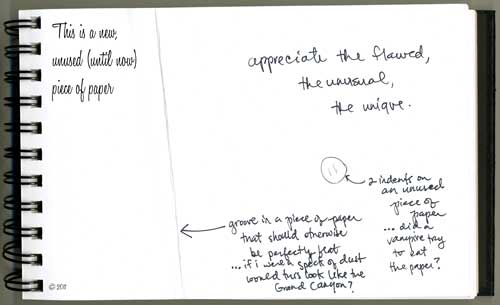 This is a new,
unused (until now)
piece of paper
appreciate the flawed,
the unusual,
the unique.
groove in a piece of paper
that should otherwise
be perfectly flat
... if i were a speck of dust
would this look like the
Grand Canyon?
2 indents on
an unused
piece of
paper
... did a
vampire try
to eat
the paper?
© 2011